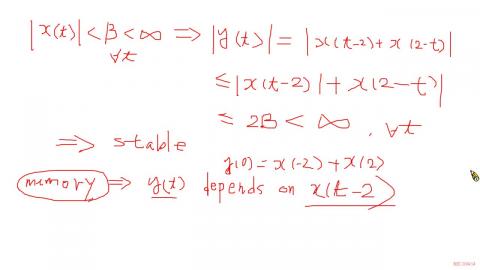 |x(t)| < B < ∞ ⇒ |y(t)| = |x(t-2) + x(2-t)|
∀t
≤ |x(t-2)| + x(2-t)|
≤ 2B < ∞, ∀t
⇒ stable
y(0) = x(-2) + x(2)
memory ⇒ y(t) depends on x(t-2)